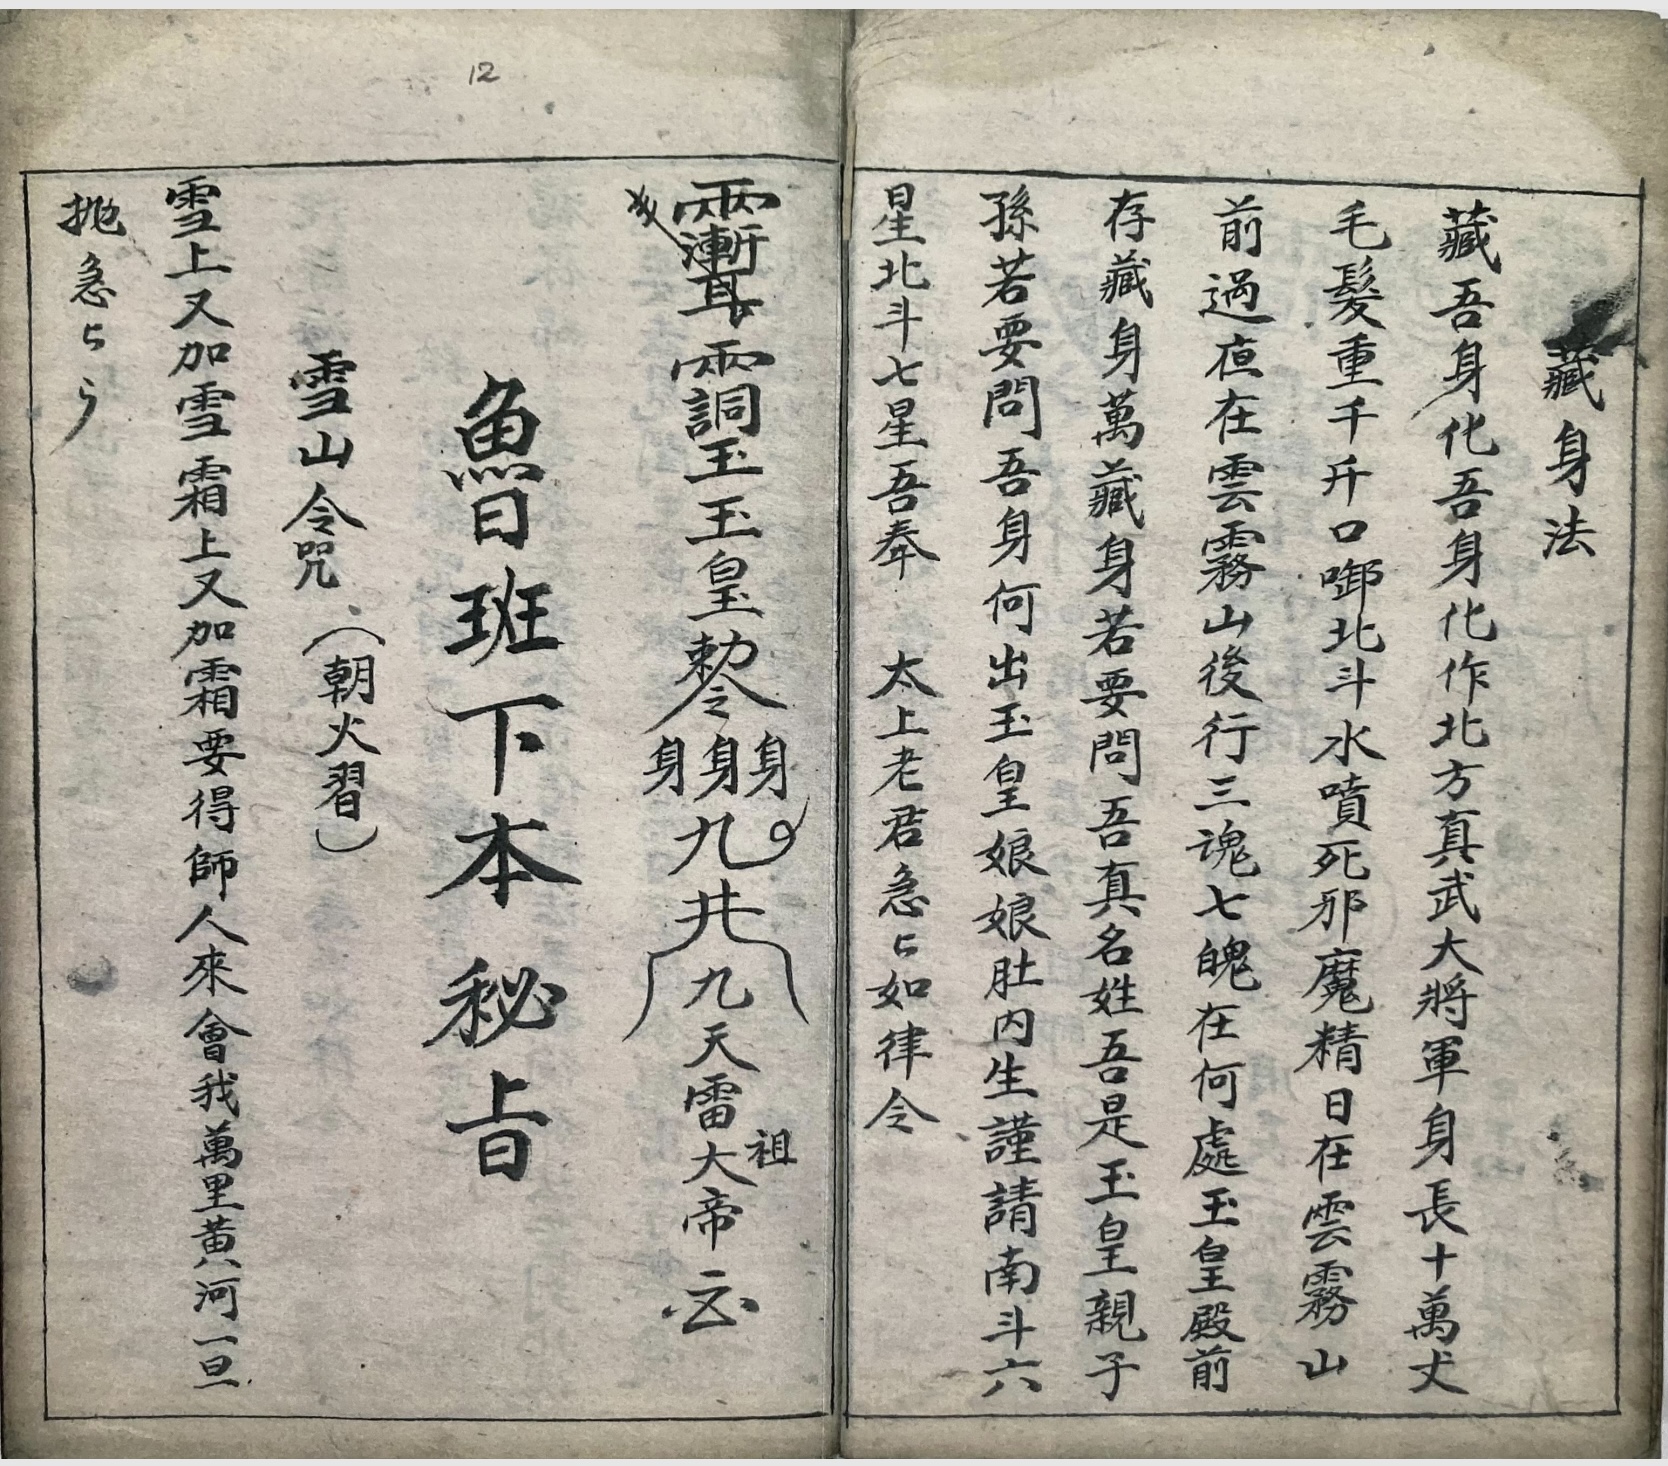 藏身法
藏吾身化吾身化作北方真武大將軍身長十萬丈
毛髮重千斤口啣北斗水噴死邪魔精日在雲霧山
前過夜在雲霧山後行三魂七魄在何處玉皇殿前
存藏身萬藏身若要問吾真名姓吾是玉皇親子
孫若要問吾身何出玉皇娘娘肚內生謹請南斗六
星北斗七星吾奉 太上老君急々如律令
玉玉皇勅令身身身九井九天雷祖大帝
魯班下本秘旨
雪山令咒(朝火習)
雪上又加雪霜上又加霜要得師人來會我萬里黃河一旦
拋急々
12